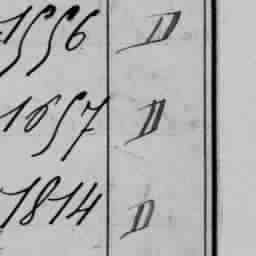 1556 D
1657 D
1814 D